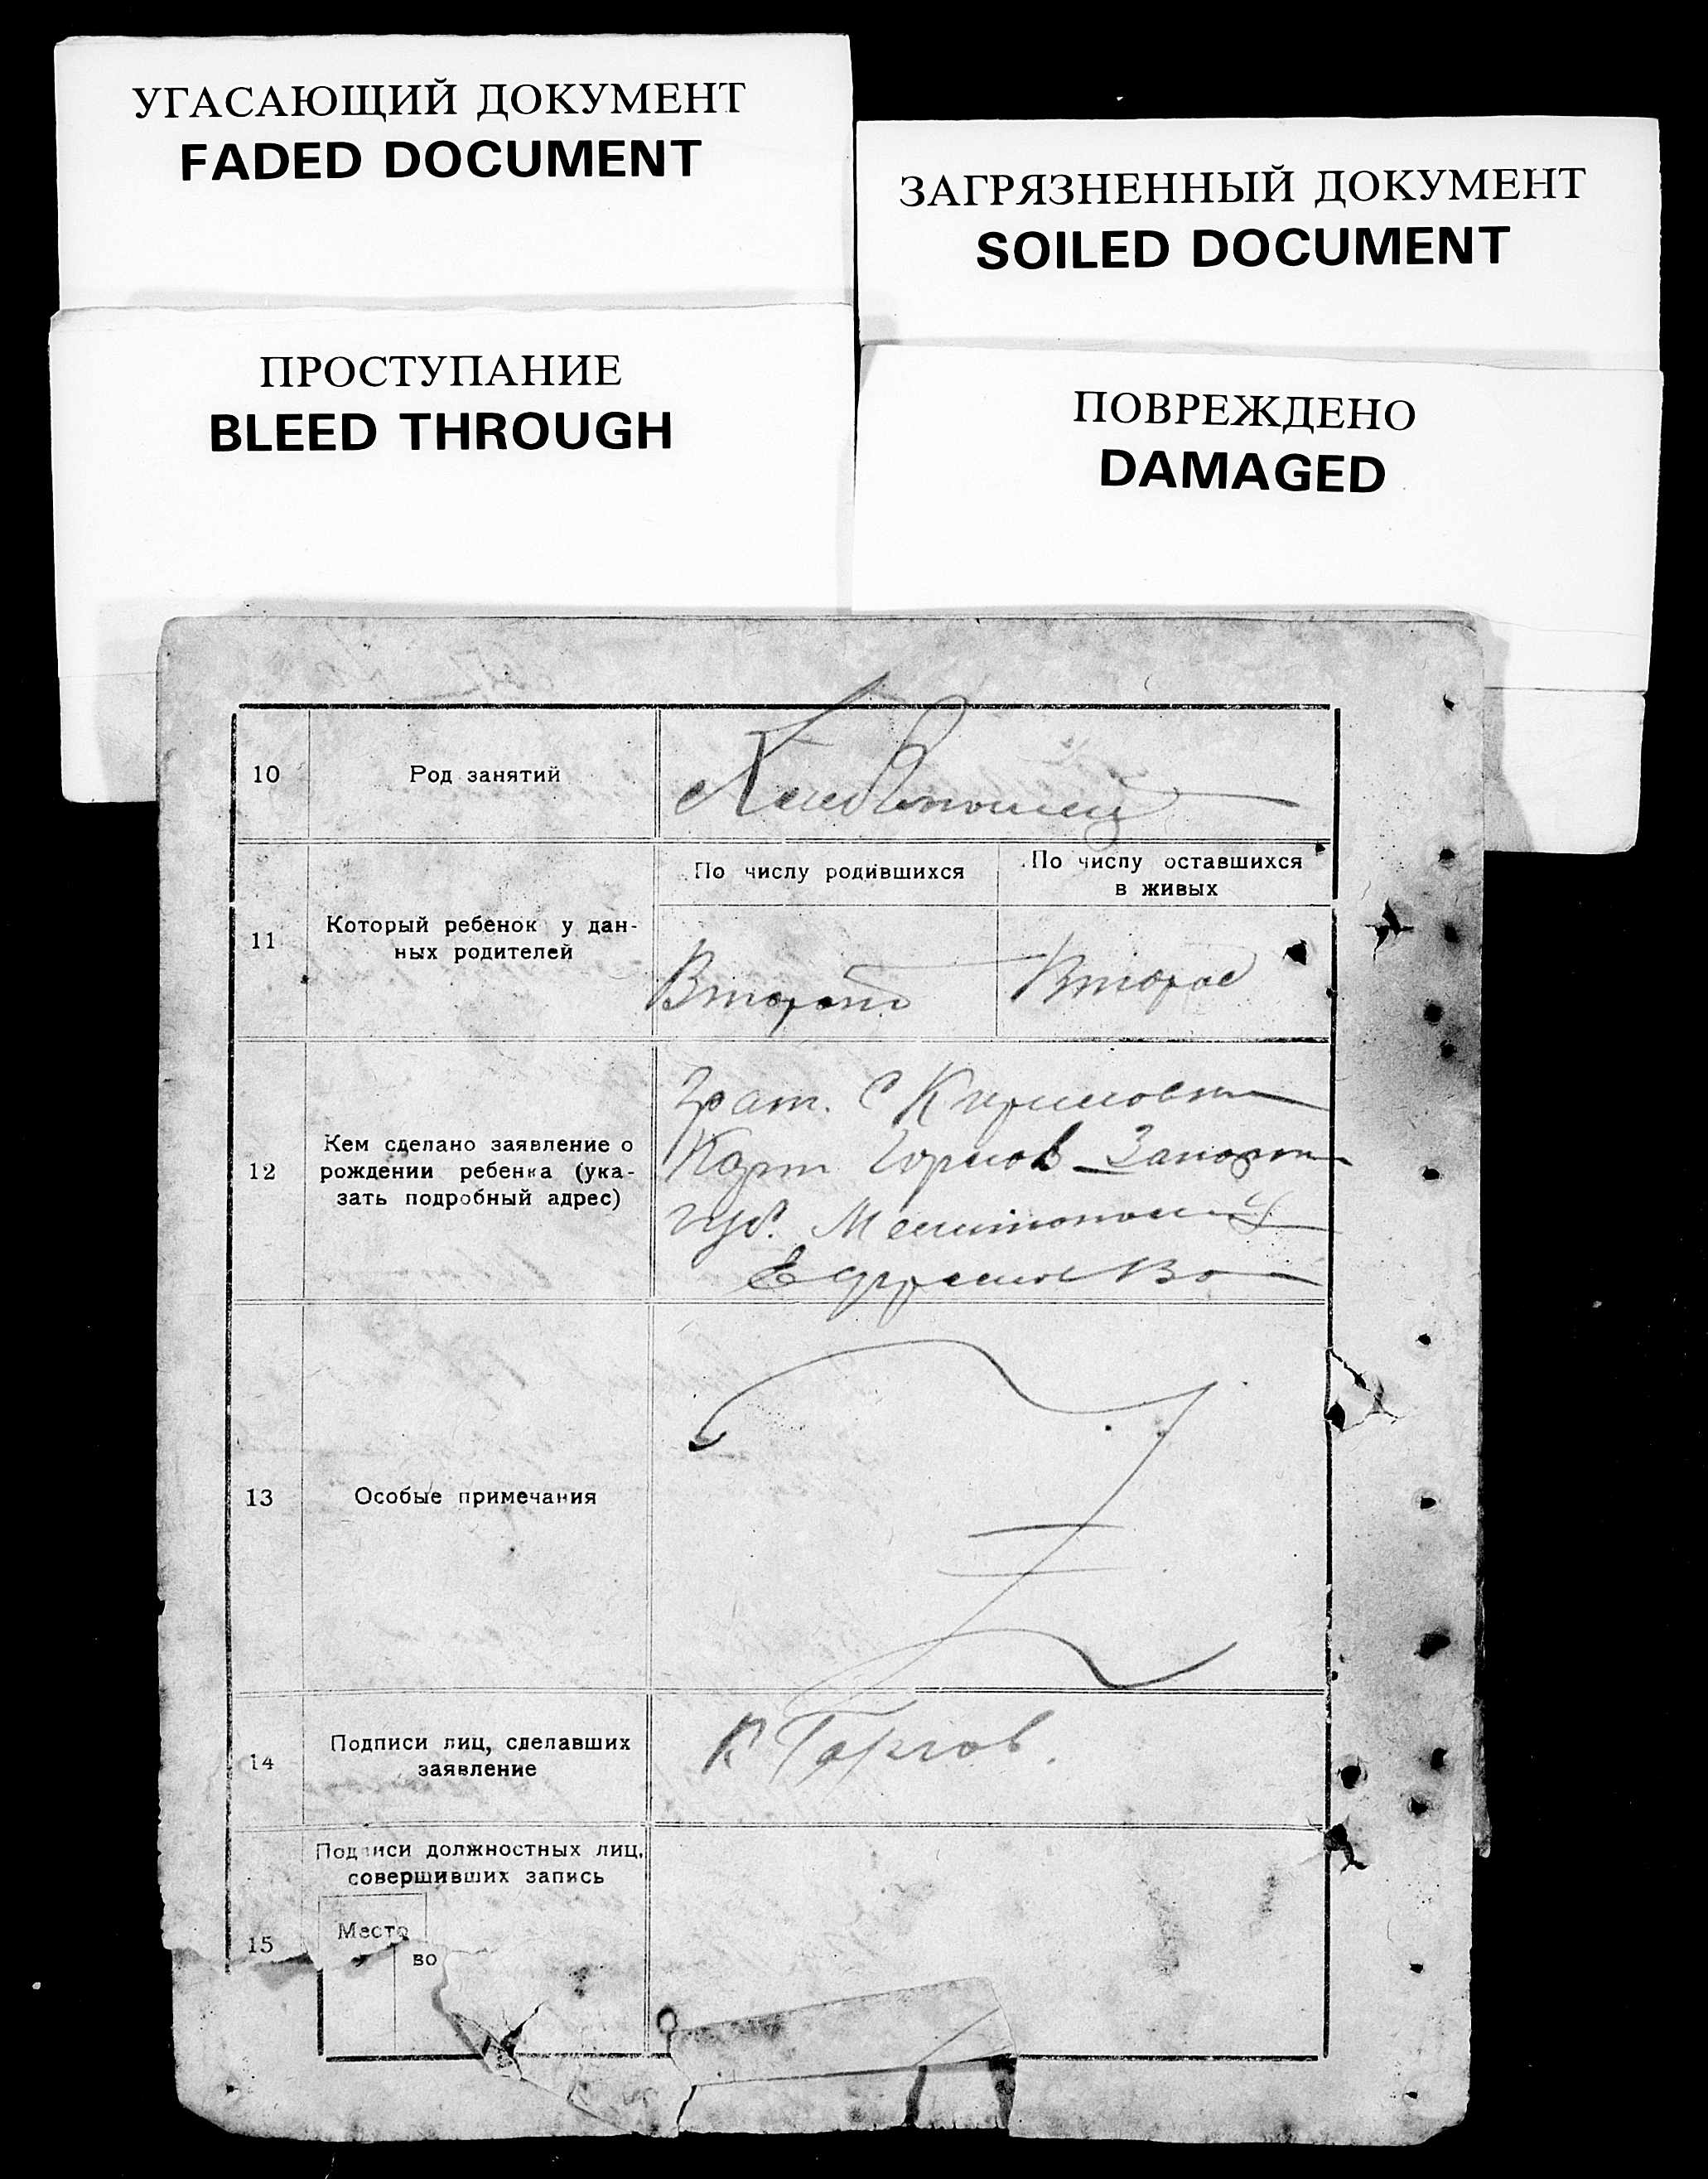 УГАСАЮЩИЙ ДОКУМЕНТ
FADED DOCUMENT
ЗАГРЯЗНЕННЫЙ ДОКУМЕНТ
SOILED DOCUMENT
ПРОСТУПАНИЕ
BLEED THROUGH
ПОВРЕЖДЕНО
DAMAGED
10
Род занятий
11
Который ребенок у дан-
ных родителей
По числу родившихся
По числу оставшихся
в живых
Второй
Второе
12
Кем сделано заявление о
рождении ребенка (ука-
зать подробный адрес)
Грат. С
губ.
13
Особые примечания
14
Подписи лиц, сделавших
заявление
К
15
Подписи должностных лиц,
совершивших запись
Место
во